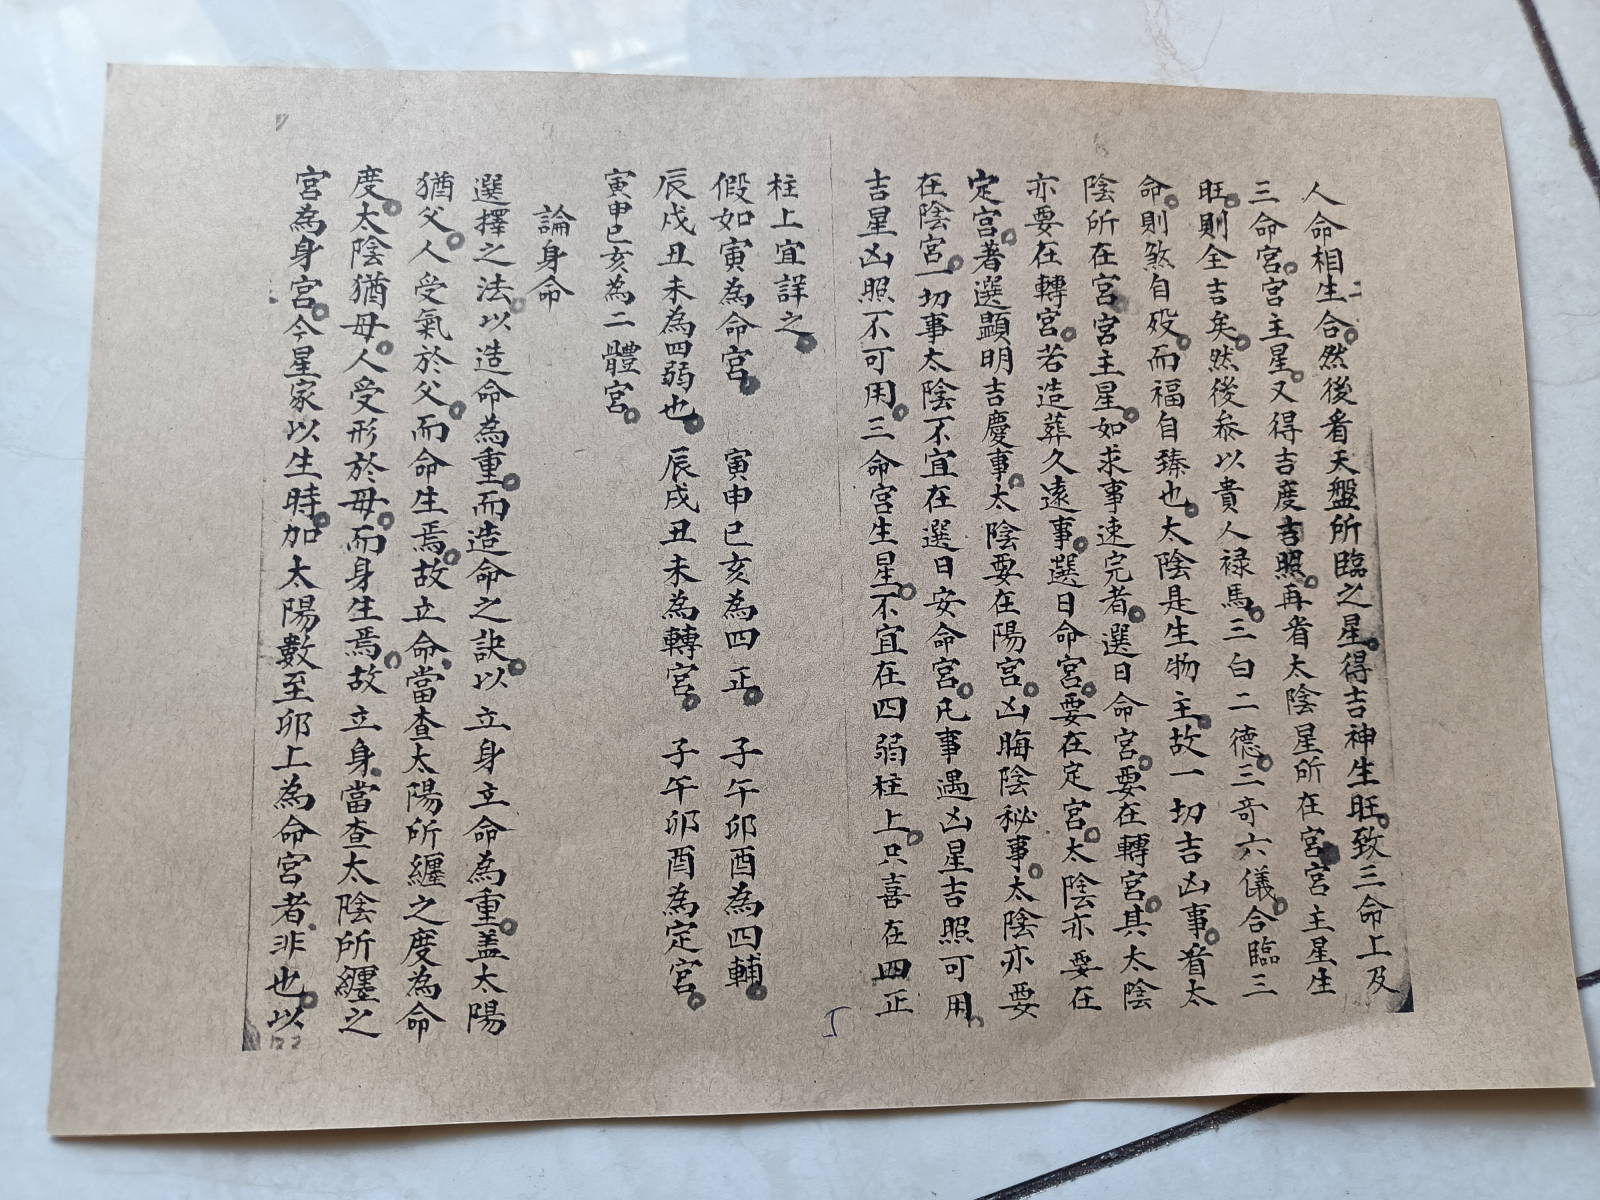 人命相生合。然後看天盤所臨之星。得吉神生旺。致三命上及
三命宮。宮主星。又得吉度吉照。再看太陰星所在宮。宮主星生
旺。則全吉矣。然後叅以貴人祿馬。三白二德。三奇六儀。合臨三
命。則煞自歿。而福自臻也。太陰是生物主。故一切吉凶事。看太
陰所在宮。宮主星。如求事速完者。選日命宮。要在轉宮。其太陰
亦要在轉宮。若造葬久遠事。選日命宮。要在定宮。太陰亦要在
定宮。著選顯明吉慶事。太陰要在陽宮。凶晦陰秘事。太陰亦要
在陰宮。一切事太陰不宜在選日安命宮。凡事遇凶星吉照可用。
吉星凶照不可用。三命宮生星。不宜在四弱柱上。只喜在四正
柱上宜詳之。
假如寅為命宮。 寅申巳亥為四正。 子午卯酉為四輔。
辰戌丑未為四弱也。 辰戌丑未為轉宮。 子午卯酉為定宮。
寅申巳亥為二體宮。
論身命
選擇之法。以造命為重。而造命之訣。以立身立命為重。盖太陽
猶父。人受氣於父。而命生焉。故立命、當查太陽所纏之度為命
度。太陰猶母。人受形於母。而身生焉。故立身、當查太陰所纏之
宮為身宮。今星家以生時。加太陽數至卯上為命宮者、非也。以